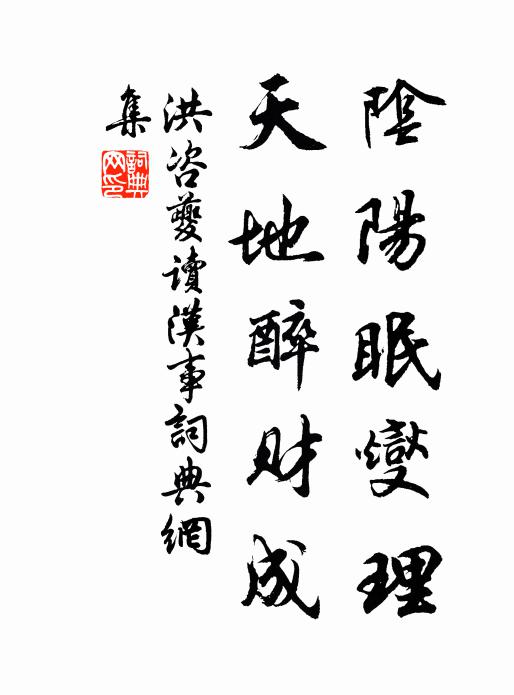 陰陽眠燮理
天地醉財成
洪咨夔讀漢事詞典網
集
詞典
网印